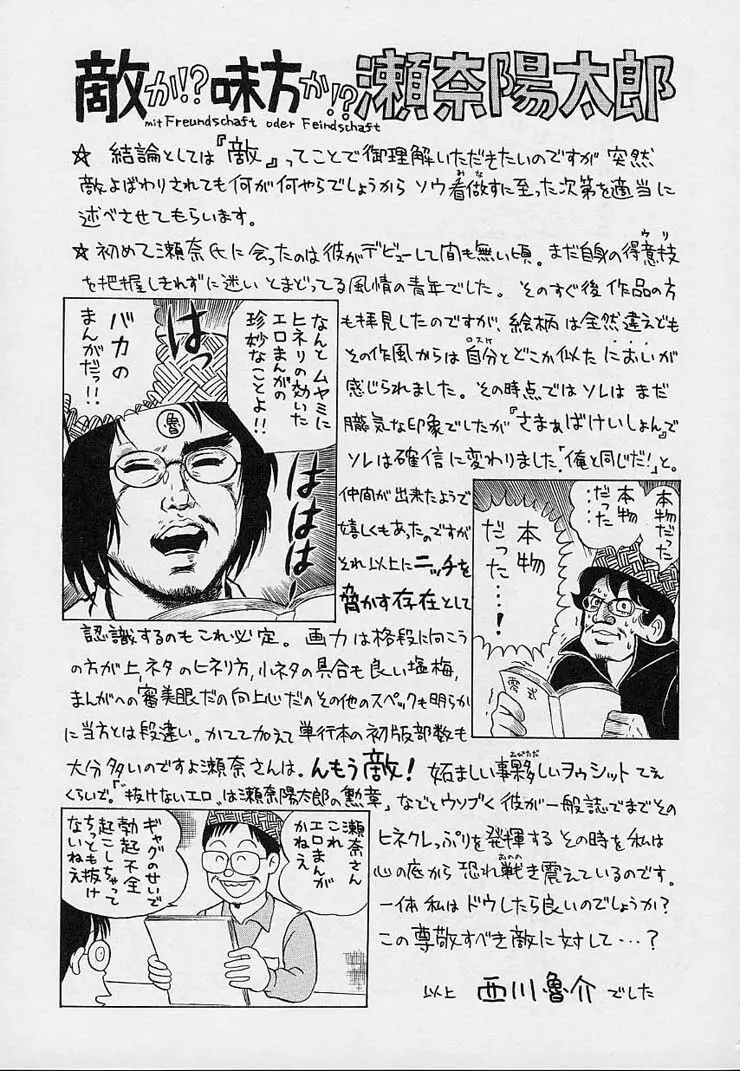 敵か!?味方か!?瀬奈陽太郎
mit Freundschaft oder Feindschaft
☆ 結論としては『敵』ってことで御理解いただきたいのですが 突然
敵よばわりされても何が何やらでしょうから ソウ看做すに至った次第を適当に
みな
述べさせてもらいます。
☆ 初めて瀬奈氏に会ったのは彼がデビューして間も無い頃。まだ自身の得意技
ウリ
を把握しきれずに迷い とまどってる風情の青年でした。 そのすぐ後 作品の方
も拝見したのですが、絵柄は全然違えども
その作風からは自分とどこか似た においが
ロスケ
感じられました。その時点ではソレは まだ
朧気な印象でしたが『さまぁばけいしょん』で
ソレは確信に変わりました「俺と同じだ!」と。
仲間が出来たようで
嬉しくもあったのですが
それ以上にニッチを
脅かす存在として
認識するのもこれ必定。 画力は格段に向こう
の方が上、ネタのヒネリ方、小ネタの具合も良い塩梅、
まんがへの審美眼だの向上心だのその他のスペックも明らか
に当方とは段違い。かてて加えて単行本の初版部数も
大分多いのですよ瀬奈さんは。んもう敵! 妬ましい事夥しいヲゥシットてぇ
おびただ
くらいで。『"抜けないエロ"は瀬奈陽太郎の勲章』などとウソブく彼が一般誌でまでその
ヒネクレっぷりを発揮する その時を私は
心の底から恐れ戦き震えているのです。
おのの
一体 私はドウしたら良いのでしょうか?
この尊敬すべき敵に対して…?
以上 西川魯介 でした
なんとムヤミに
ヒネリの効いた
エロまんがの
珍妙なことよ!!
はっ
ははは
バカの
まんがだっ!!
魯
本物だった
本物
だった…
本物
だった…!
零式
瀬奈さん
これ
エロまんが
かねえ
ギャグのせいで
勃起不全
起こしちゃって
ちっとも抜け
ないねえ